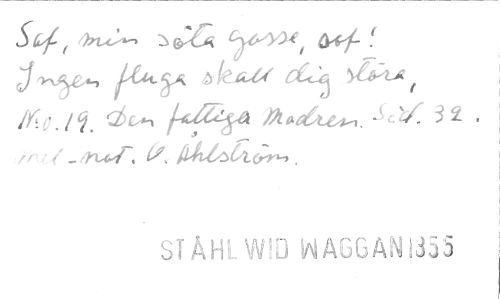 Sof, min söta gosse, sof!
Ingen fluga skall dig störa,
N:o. 19. Den fattiga Modren. Sid. 32.
mel-not. O. Åhlström.
STÅHL WID WAGGAN 1855